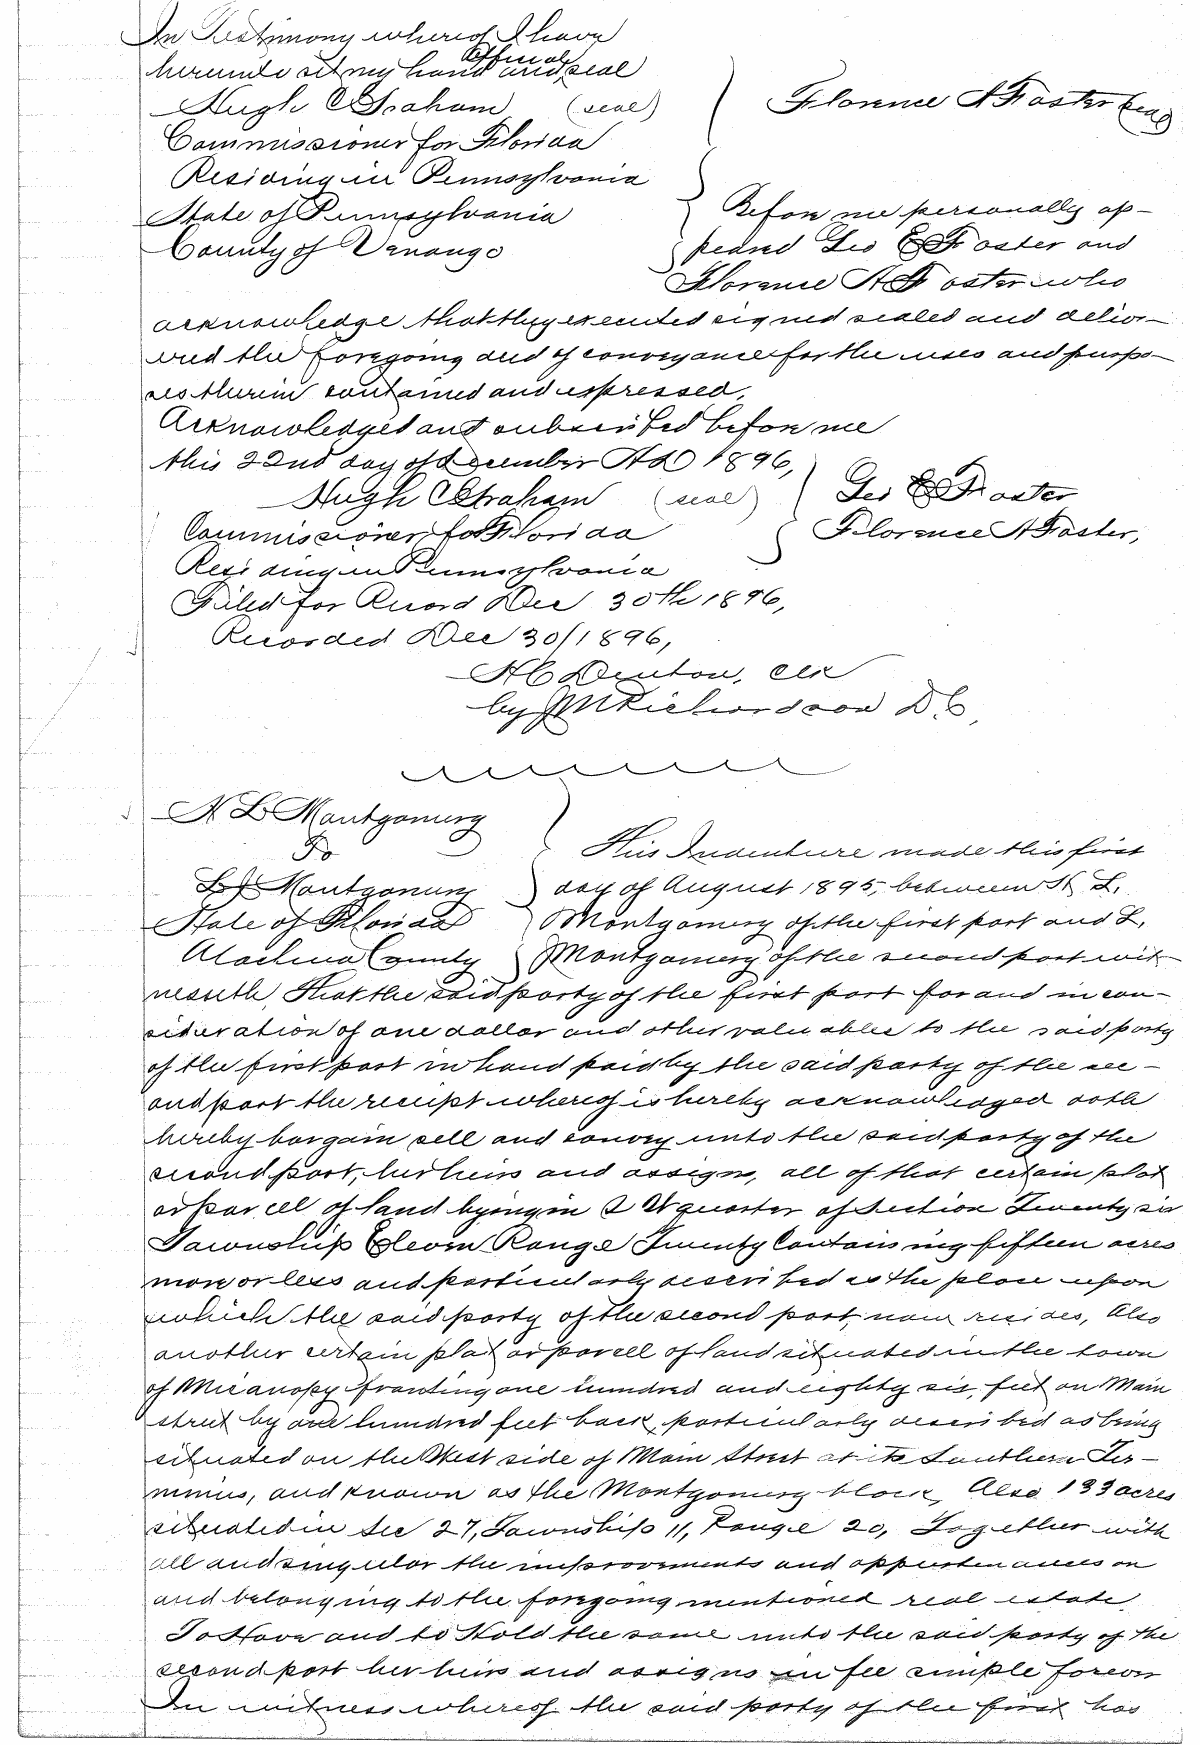 In Testimony whereof I have
hereunto set my hand and Official seal
Hugh C Graham (seal)
Florence A Foster (seal)
Commissioner for Florida
Residing in Pennsylvania
State of Pennsylvania
County of Venango
Before me personally ap-
peared Geo E Foster and
Florence A Foster who
acknowledge that they executed signed sealed and deliv-
ered the foregoing deed of conveyance for the uses and purpo-
ses therein contained and expressed,
Acknowledged and subscribed before me
this 22nd day of December AD 1896,
Hugh C Graham (seal)
Geo E Foster
Commissioner for Florida
Florence A Foster,
Residing in Pennsylvania
Filed for Record Dec 30th 1896,
Recorded Dec 30/1896,
H C Denton, Clk
by J M Richardson D.C,
N L Montgomery
To
L J Montgomery
State of Florida
Alachua County
This Indenture made this first
day of August 1895, between N L,
Montgomery of the first part and L,
Montgomery of the second part wit-
nesseth, That the said party of the first part for and in con-
sideration of one dollar and other valuables to the said party
of the first part in hand paid by the said party of the sec-
ond part the receipt whereof is hereby acknowledged doth
hereby bargain sell and convey unto the said party of the
second part, her heirs and assigns, all of that certain plat
or parcell of land lying in S W quarter of Section Twenty six
Township Eleven Range Twenty Containing fifteen acres
more or less and particularly described as the place upon
which the said party of the second part, now resides, Also
another certain plat or parcell of land situated in the town
of Micanopy fronting one hundred and eighty six, feet on Main
street by one hundred feet back, particularly described as being
situated on the West side of Main Street at its Southern Ter-
minus, and known as the Montgomery block, Also 133 acres
situated in Sec 27, Township 11, Range 20, Together with
all and singular the improvements and appurtenances on
and belonging to the foregoing mentioned real estate,
To Have and to Hold the same unto the said party of the
second part her heirs and assigns in fee simple forever
In witness whereof the said party of the first has